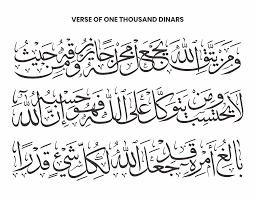 VERSE OF ONE THOUSAND DINARS
وَمَنْ يَتَّقِ اللَّهَ يَجْعَلْ لَهُ مَخْرَجًا وَيَرْزُقْهُ مِنْ حَيْثُ
لَا يَحْتَسِبُ وَمَنْ يَتَوَكَّلْ عَلَى اللَّهِ فَهُوَ حَسْبُهُ إِنَّ اللَّهَ
بَالِغُ أَمْرِهِ قَدْ جَعَلَ اللَّهُ لِكُلِّ شَيْءٍ قَدْرًا